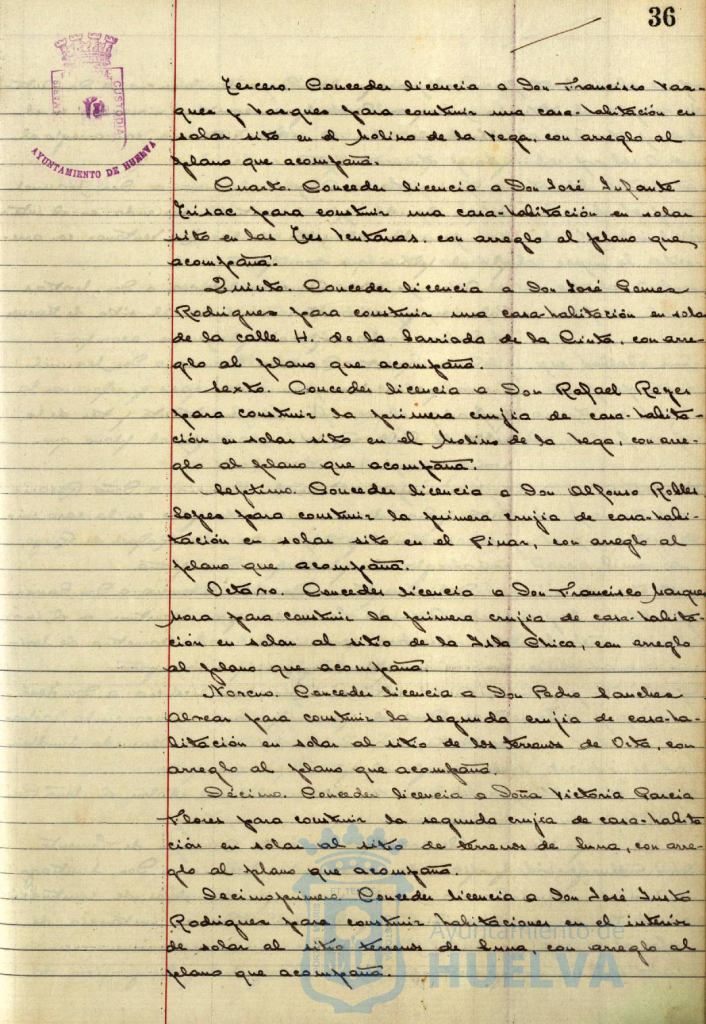 36
PORTUS
CUSTODIA
AYUNTAMIENTO DE HUELVA
Tercero. Conceder licencia a Don Francisco Vaz-
quez y Vazquez para construir una casa-habitación en
solar sito en el Molino de la Vega, con arreglo al
plano que acompaña.
Cuarto. Conceder licencia a Don José Infante
para construir una casa-habitación en solar
sito en las Tres Ventanas, con arreglo al plano que
acompaña.
Quinto. Conceder licencia a Don José Gomez
Rodriguez para construir una casa-habitación en solar
de la calle H. de la barriada de la Cinta, con arre-
glo al plano que acompaña.
Sexto. Conceder licencia a Don Rafael Reyes
para construir la primera crujia de casa-habita-
ción en solar sito en el Molino de la Vega, con arre-
glo al plano que acompaña.
Septimo. Conceder licencia a Don Alfonso Robles
Lopez para construir la primera crujia de casa-habi-
tación en solar sito en el Pinar, con arreglo al
plano que acompaña.
Octavo. Conceder licencia a Don Francisco Marquez
Mora para construir la primera crujia de casa-habita-
ción en solar al sitio de la Isla Chica, con arreglo
al plano que acompaña.
Noveno. Conceder licencia a Don Pedro Sanchez
Alvear para construir la segunda crujia de casa-ha-
bitación en solar al sitio de los terrenos de Orta, con
arreglo al plano que acompaña.
Décimo. Conceder licencia a Doña Victoria Garcia
Flores para construir la segunda crujia de casa-habita
ción en solar al sitio de terrenos de Luna, con arre-
glo al plano que acompaña.
Decimoprimero. Conceder licencia a Don José Justo
Rodriguez para construir habitaciones en el interior
de solar al sitio terrenos de Luna, con arreglo al
plano que acompaña.
Ayuntamiento de
HUELVA